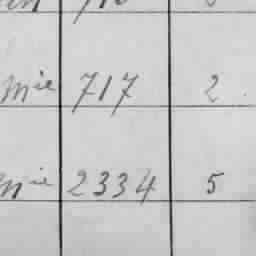 mie 717 2
mie 2334 5